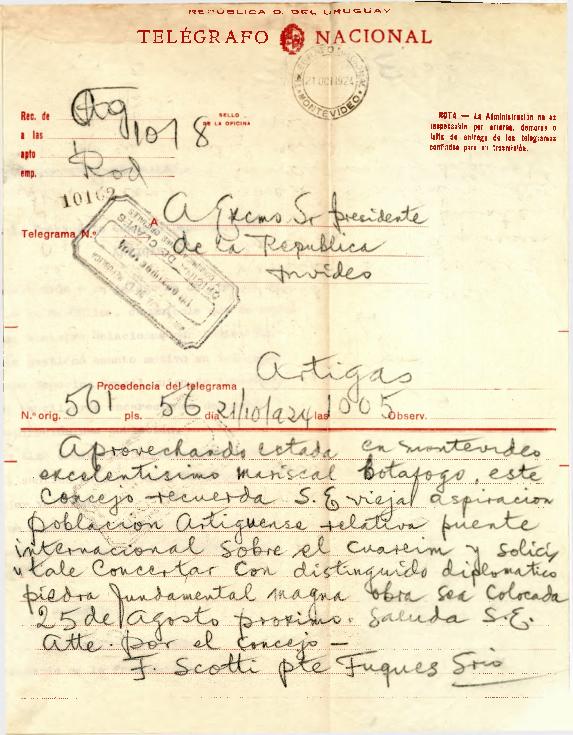 REPUBLICA O. DEL URUGUAY
TELÉGRAFO NACIONAL
21 OCT 1924
MONTEVIDEO
Rec. de
a las 1018
apto
emp.
SELLO
DE LA OFICINA
NOTA — La Administración no es
responsable por errores, demoras o
falta de entrega de los telegramas
confiados para su trasmisión.
10162
Telegrama N.º
A A Excmo Sr presidente
de la Republica
Mvideo
Procedencia del telegrama Artigas
N.º orig. 561 pls. 56 día 21/10/924 las 1005 Observ.
Aprovechando estada en montevideo
excelentisimo mariscal Botafogo, este
Concejo recuerda S.E vieja aspiracion
poblacion Artiguense relativa puente
internacional sobre el cuareim y solici
tale concertar con distinguido diplomatico
piedra fundamental magna obra sea colocada
25 de Agosto proximo. Saluda S.E.
Atte. por el concejo —
F. Scotti pte Fuques Srio